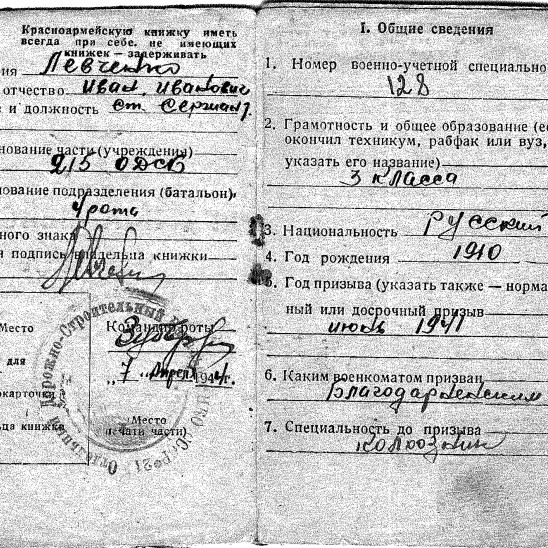 Красноармейскую книжку иметь
всегда при себе. не имеющих
книжек — задерживать
ия Левченко
отчество Иван Иванович
и должность ст. Сержант
нование части (учреждения)
215 ОДСБ
нование подразделения (батальон,
4 рота
ного знака
я подпись владельца книжки
Место
для
карточки
ца книжки
Командир роты
„7" Апрель 1944г.
Место
печати части)
Дорожно-Строительный
Отдельный
I. Общие сведения
1. Номер военно-учетной специально
128
2. Грамотность и общее образование (ес
окончил техникум, рабфак или вуз,
указать его название)
3 класса
3. Национальность русский
4. Год рождения 1910
5. Год призыва (указать также — норма
ный или досрочный призыв
июль 1941
6. Каким военкоматом призван
Благодарненским
7. Специальность до призыва
колхозник